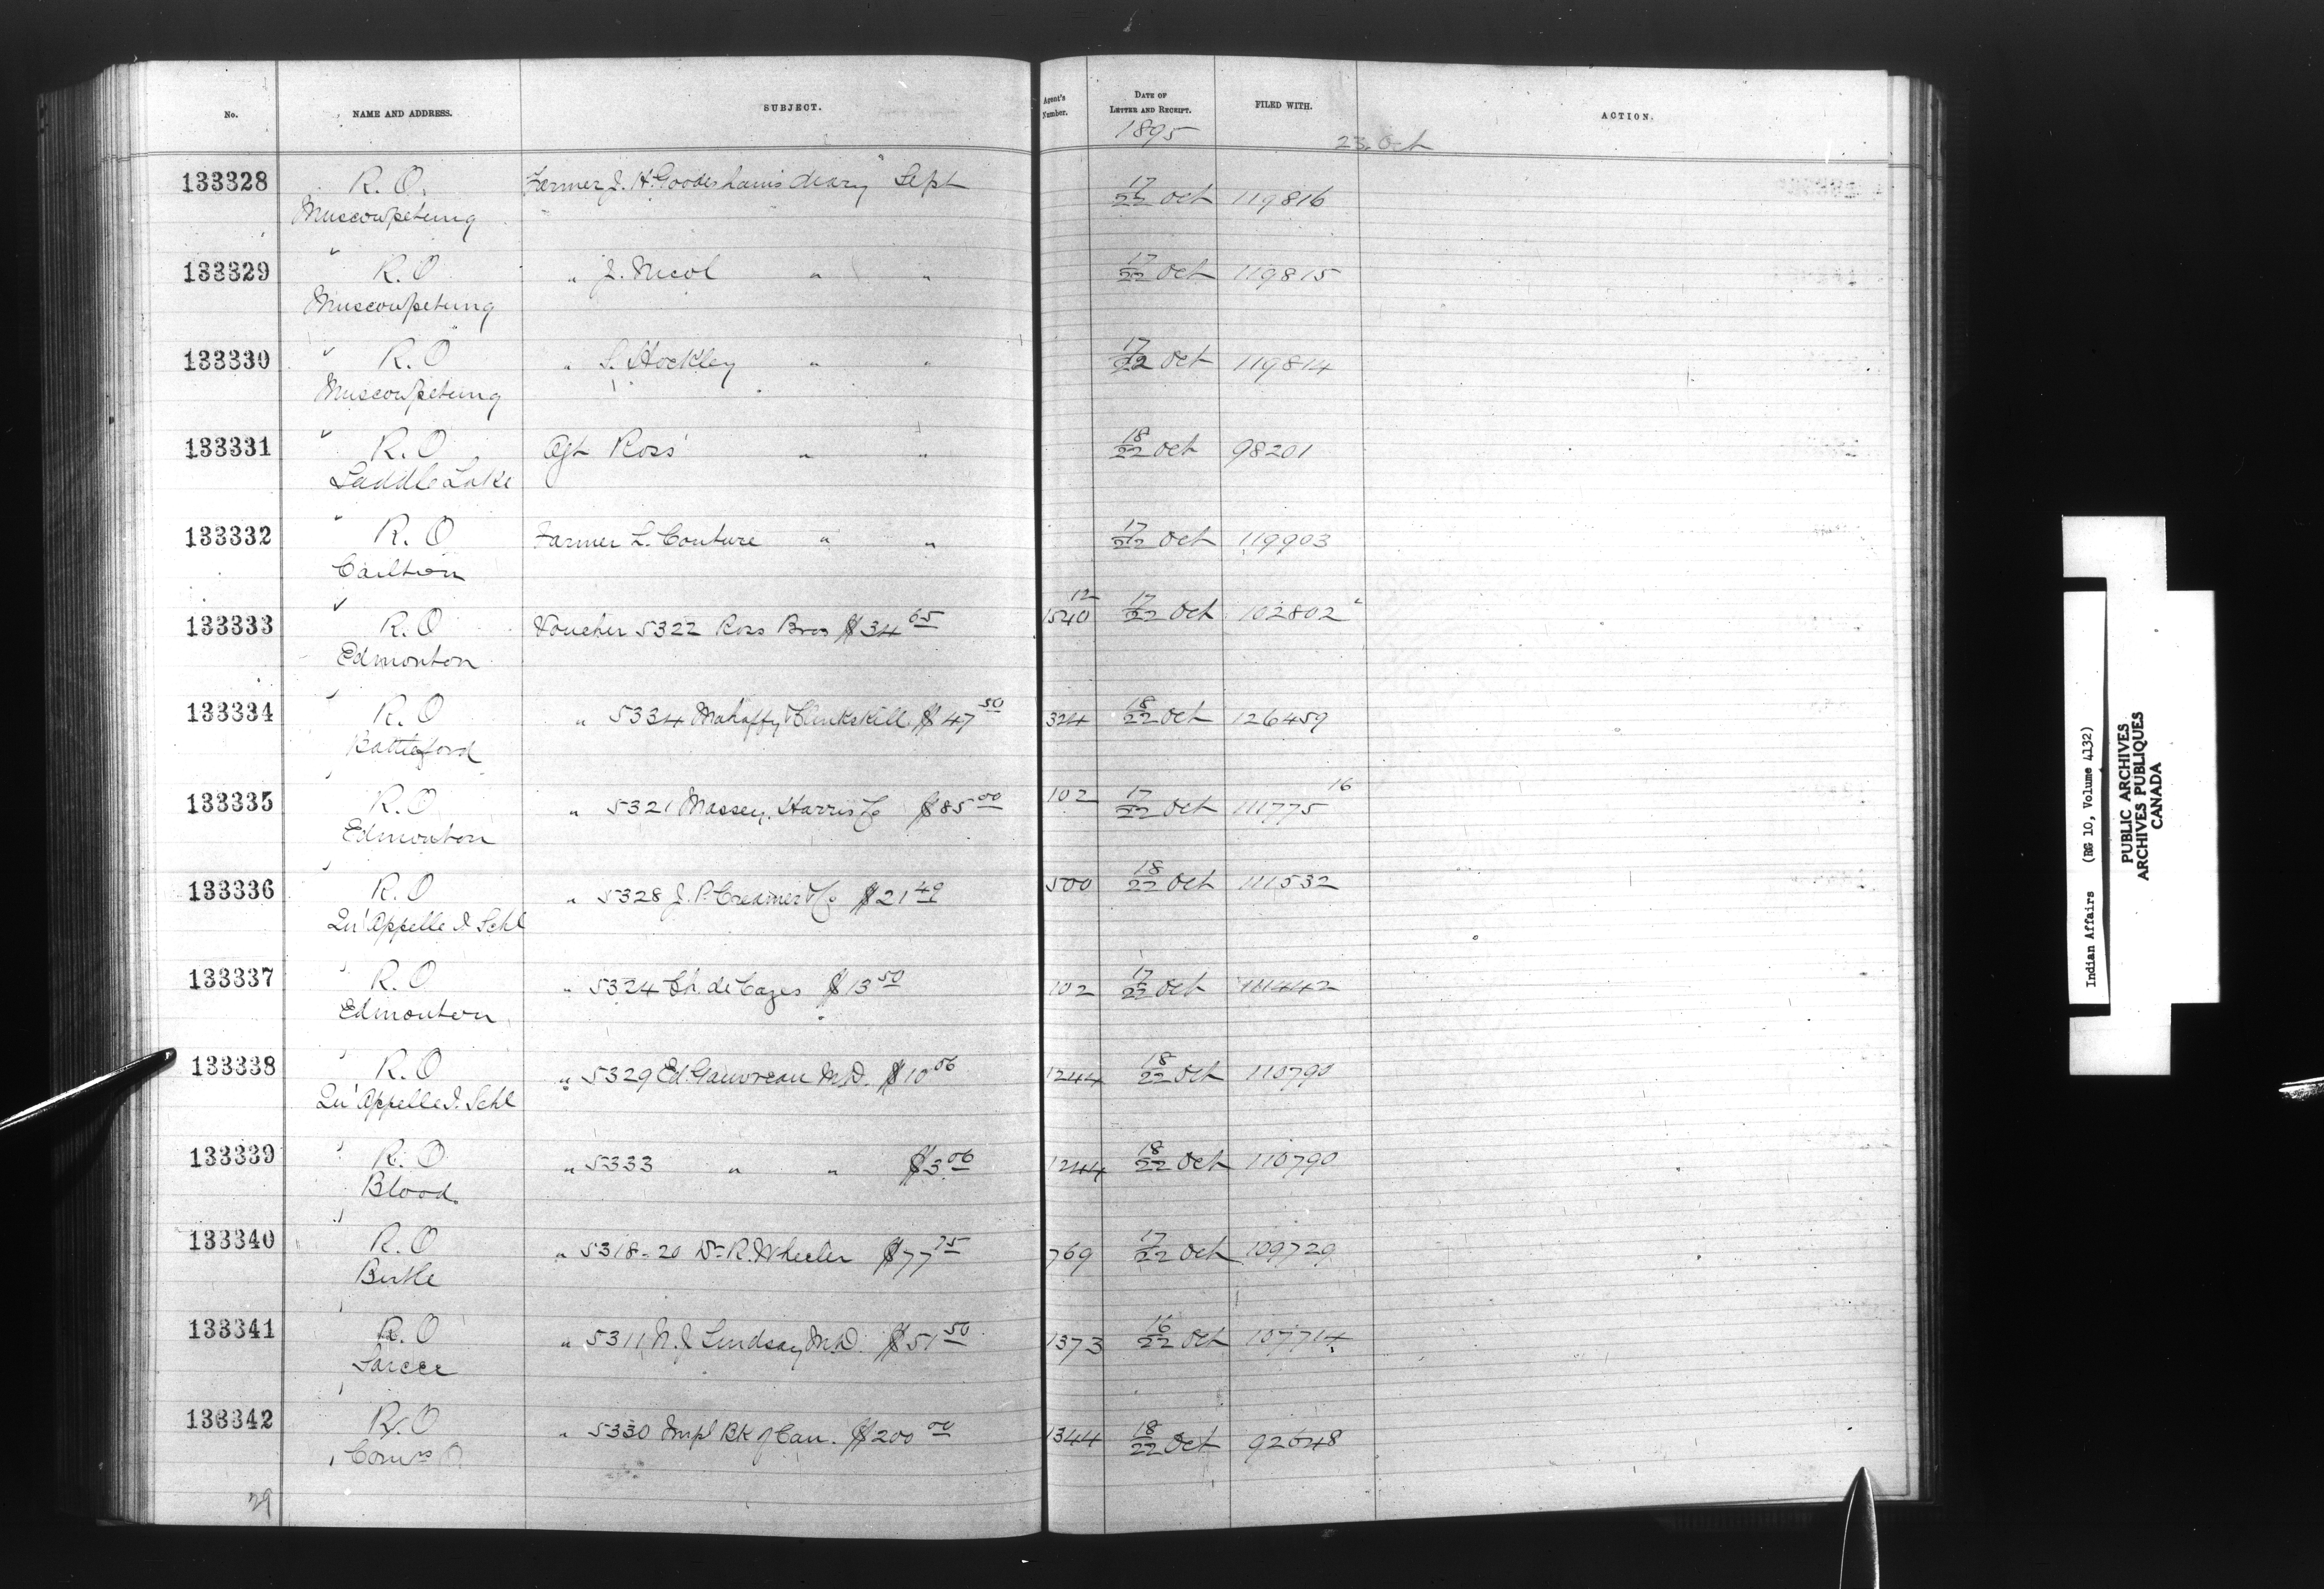 No. NAME AND ADDRESS. SUBJECT. Agent's Number. DATE OF LETTER AND RECEIPT. FILED WITH. ACTION.
1895 23. Oct
133328 R.O. Farmer J. H. Gooderham's diary Sept 17/22 Oct 119816
Muscowpetung
133329 " R.O " J. Nicol " " 17/22 Oct 119815
Muscowpetung
133330 " R.O " S. Hockley " " 17/22 Oct 119814
Muscowpetung
133331 " R.O Agt Ross' " " 18/22 Oct 98201
Saddle Lake
133332 " R.O Farmer L. Couture " " 17/22 Oct 119903
Carlton
133333 " R.O Voucher 5322 Ross Bros $34 65 12 1540 17/22 Oct 102802
Edmonton
133334 " R.O " 5334 Mahaffy & Clinkskill $47 50 324 18/22 Oct 126459
Battleford
133335 ' R.O " 5321 Massey, Harris Co $85 00 102 17/22 Oct 111775 16
Edmonton
133336 ' R.O " 5328 J. P. Creamer & Co $21 49 500 18/22 Oct 111532
Qu'Appelle I Schl
133337 ' R.O " 5324 Ch. de Cazes $13 50 102 17/22 Oct 111442
Edmonton
133338 ' R.O " 5329 Ed. Gauvreau M.D. $10 06 1244 18/22 Oct 110790
Qu'Appelle I. Schl
133339 ' R.O " 5333 " " $3 06 1244 18/22 Oct 110790
Blood.
133340 ' R.O " 5318-20 Dr R. Wheeler $77 75 769 17/22 Oct 109729
Birtle
133341 ' R.O " 5311 N. J Lindsay M.D. $51 50 1373 16/22 Oct 107714
Sarcee
133342 ' R.O " 5330 Impl Bk of Can. $200 00 1344 18/22 Oct 92648
Comrs O.
29
Indian Affairs (RG 10, Volume 4132)
PUBLIC ARCHIVES
ARCHIVES PUBLIQUES
CANADA